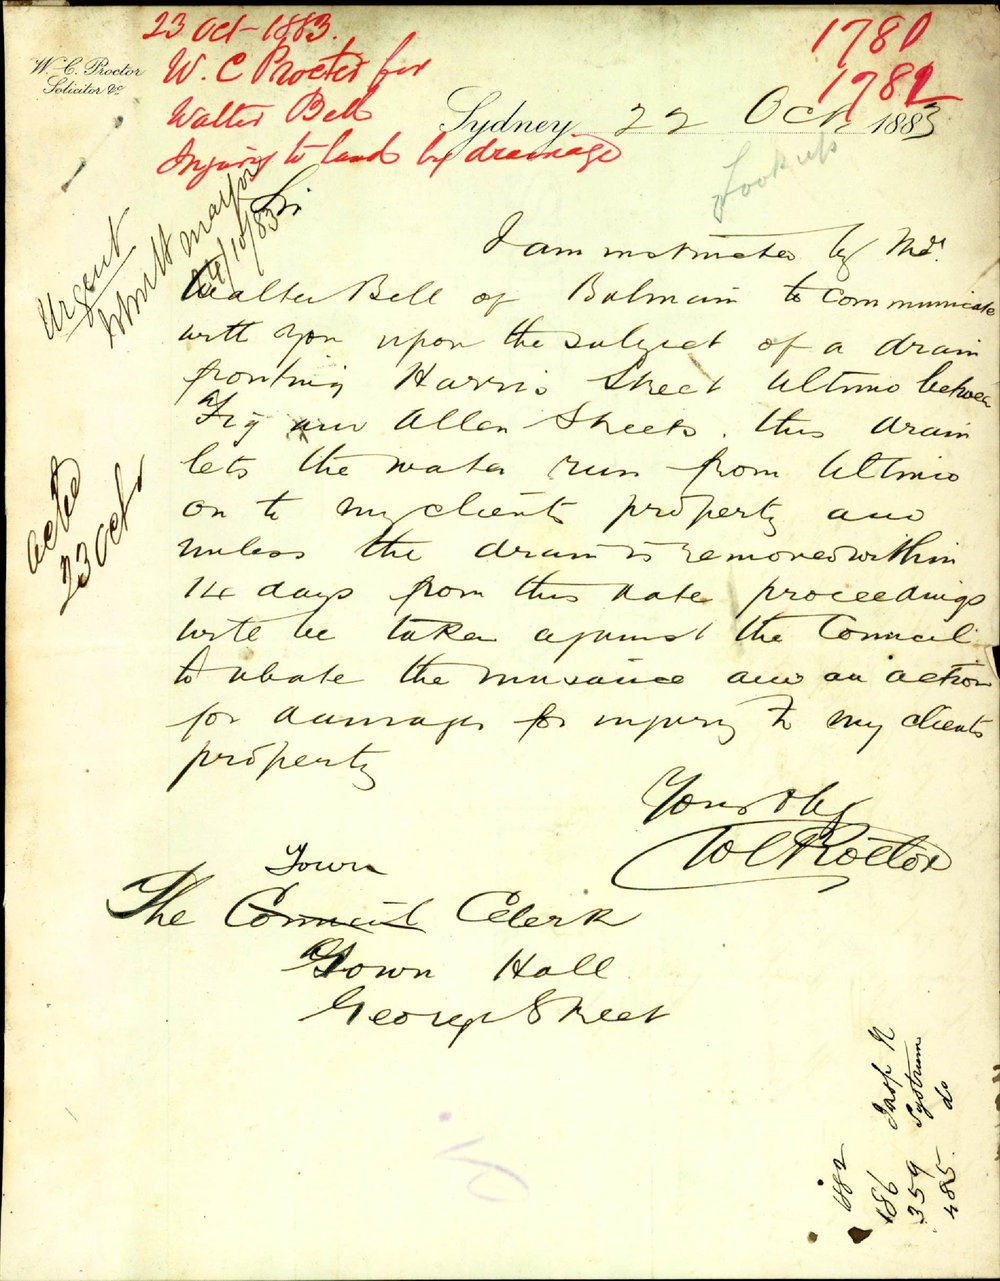 23 Oct - 1883.
W. C Procter for
Walter Bell
Injury to land by drainage
1780
1782
W. C. Proctor
Solicitor &c
Sydney 22 Oct 1883
Look up
Urgent
Submit Mayor
24/10/83
Sir
I am instructed by Mr.
Walter Bell of Balmain to communicate
with you upon the subject of a drain
fronting Harris Street Ultimo between
Fig and Allen Streets. this drain
lets the water run from Ultimo
on to my clients property and
unless the drain is removed within
14 days from this date proceedings
will be taken against the Council
to abate the nuisance and an action
for damages for injury to my clients
property
acted
23 Oct
Yours Obt
W C Proctor
Town
The Council Clerk
Town Hall
George Street
1882
186 Insp N
359 Systrum
485. do